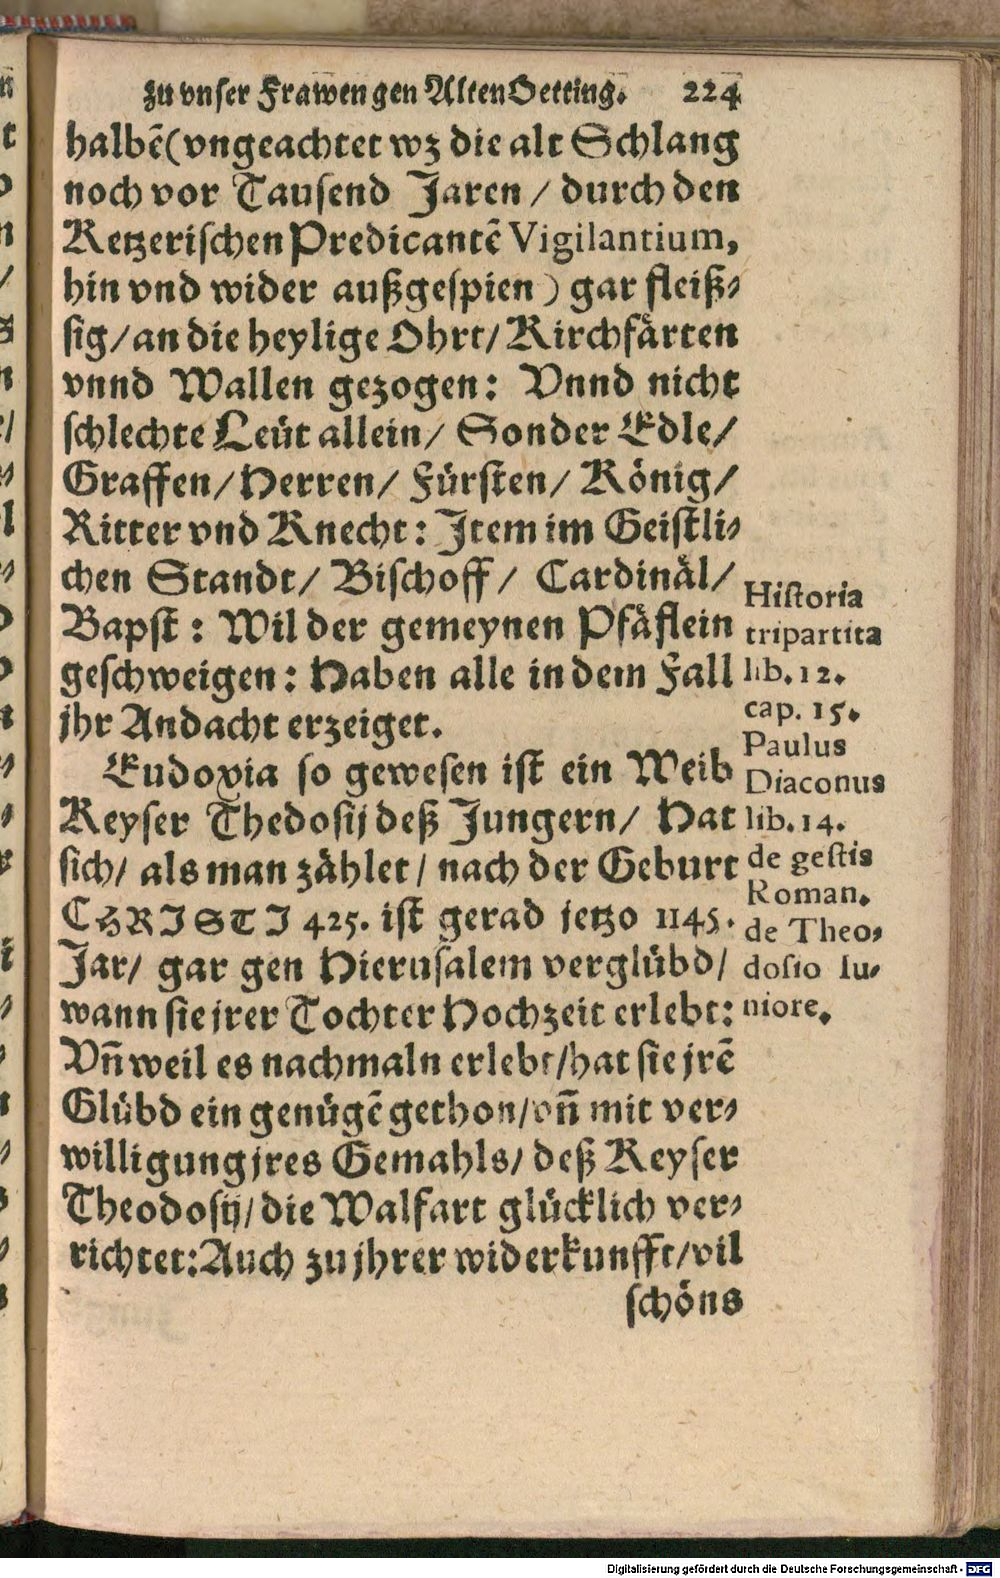 zu vnser Frawen gen Alten Oetting. 224
halbẽ (vngeachtet wz die alt Schlang
noch vor Tausend Jaren / durch den
Ketzerischen Predicantẽ Vigilantium,
hin vnd wider außgespien) gar fleiß⸗
sig / an die heylige Ohrt / Kirchfärten
vnnd Wallen gezogen: Vnnd nicht
schlechte Leüt allein / Sonder Edle /
Graffen / Herren / Fürsten / König /
Ritter vnd Knecht: Jtem im Geistli⸗
chen Standt / Bischoff / Cardinäl /
Bapst: Wil der gemeynen Pfäflein
geschweigen: Haben alle in dem Fall
jhr Andacht erzeiget.
Eudoxia so gewesen ist ein Weib
Keyser Thedosij deß Jungern / Hat
sich / als man zählet / nach der Geburt
CHRISTI 425. ist gerad jetzo 1145.
Jar / gar gen Hierusalem verglübd /
wann sie jrer Tochter Hochzeit erlebt:
Vñ weil es nachmaln erlebt / hat sie jrẽ
Glübd ein genügẽ gethon / vñ mit ver⸗
willigung jres Gemahls / deß Keyser
Theodosij / die Walfart glücklich ver⸗
richtet: Auch zu jhrer widerkunfft / vil
schöns
Historia
tripartita
lib. 12.
cap. 15.
Paulus
Diaconus
lib. 14.
de gestis
Roman.
de Theo⸗
dosio Iu⸗
niore.
Digitalisierung gefördert durch die Deutsche Forschungsgemeinschaft - DFG